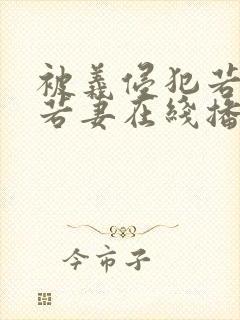 被義侵犯若
若妻在线播
今市子